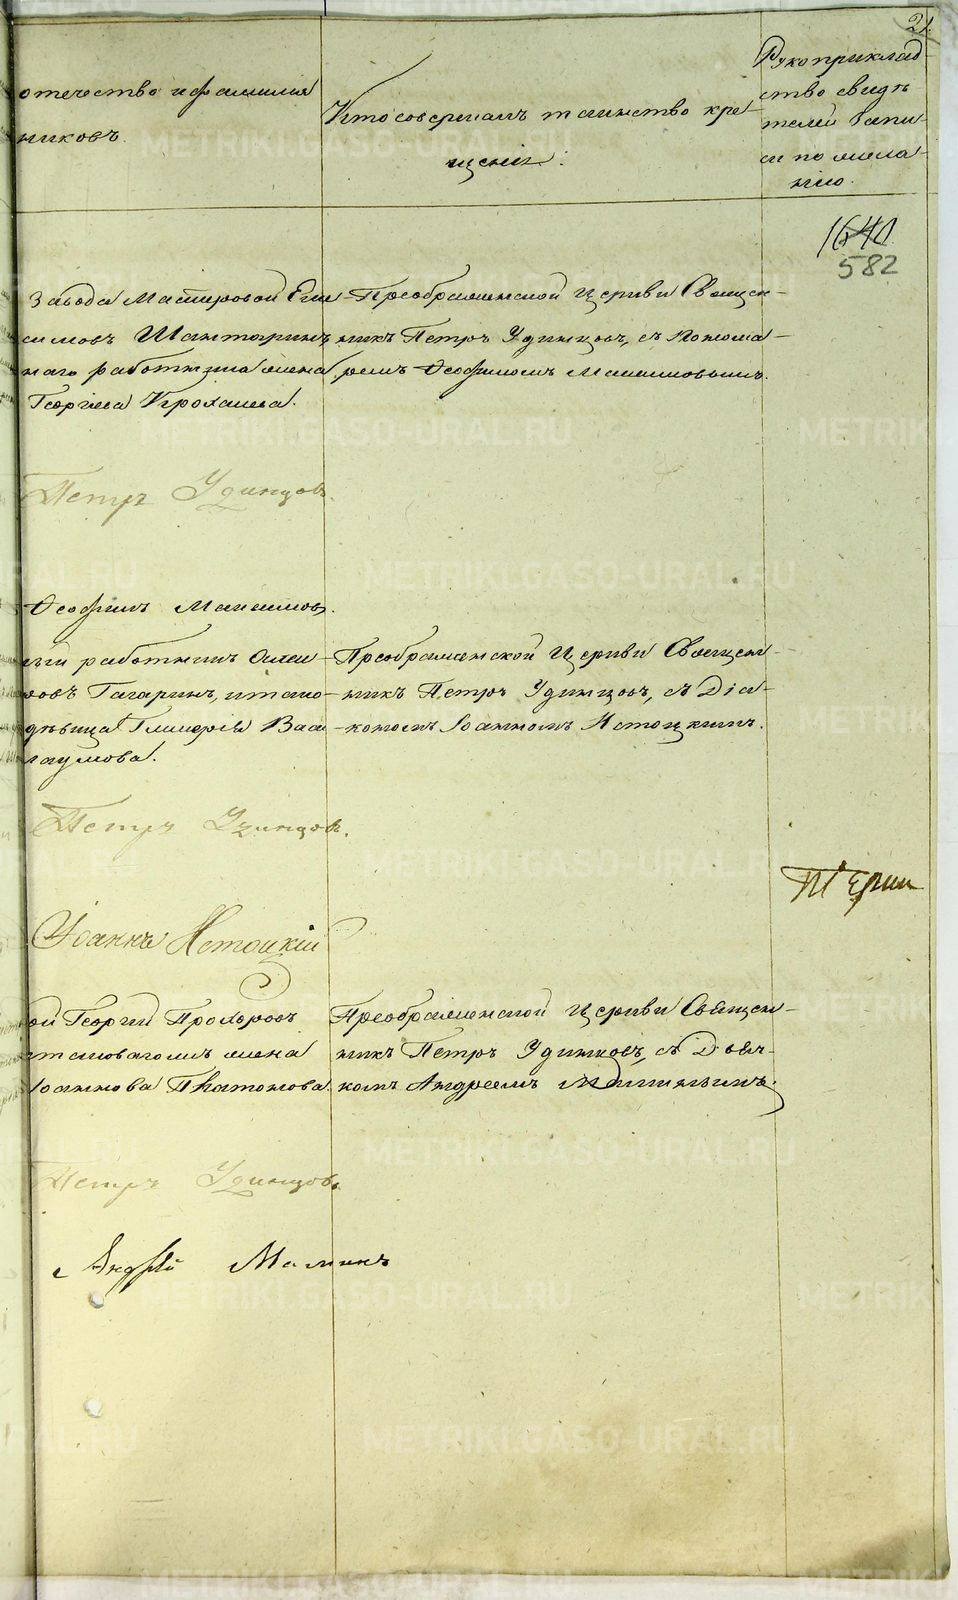 21.
отечество и фамилія
никовъ.
Кто совершалъ таинство кре-
щенія.
Рукоприклад-
ство свидѣ
телей записи
по жела-
нію.
1640
582
завода Мастеровой Ели-
симовъ Шантаринъ
наго работника жена
Георгіева Крохалева.
Преображенской Церкви Священ-
никъ Петръ Удинцовъ, съ Понома-
ремъ Ѳеофиломъ Макшиновымъ.
Петръ Удинцовъ.
Ѳеофилъ
ный работникъ
Гагаринъ, и тако-
дѣвица Гликерія Вах-
Преображенской Церкви Священ-
никъ Петръ Удинцовъ, съ Діа-
кономъ Іоанномъ Нетоцкимъ.
Петръ Удинцовъ.
Іоаннъ Нетоцкій
ой Георгій Прохоровъ
жена
Іоаннова Платонова.
Преображенской Церкви Священ-
никъ Петръ Удинцовъ, съ Дьяч-
комъ Андреемъ
Петръ Удинцовъ.
Андрей Малинъ
METRIKI.GASO-URAL.RU